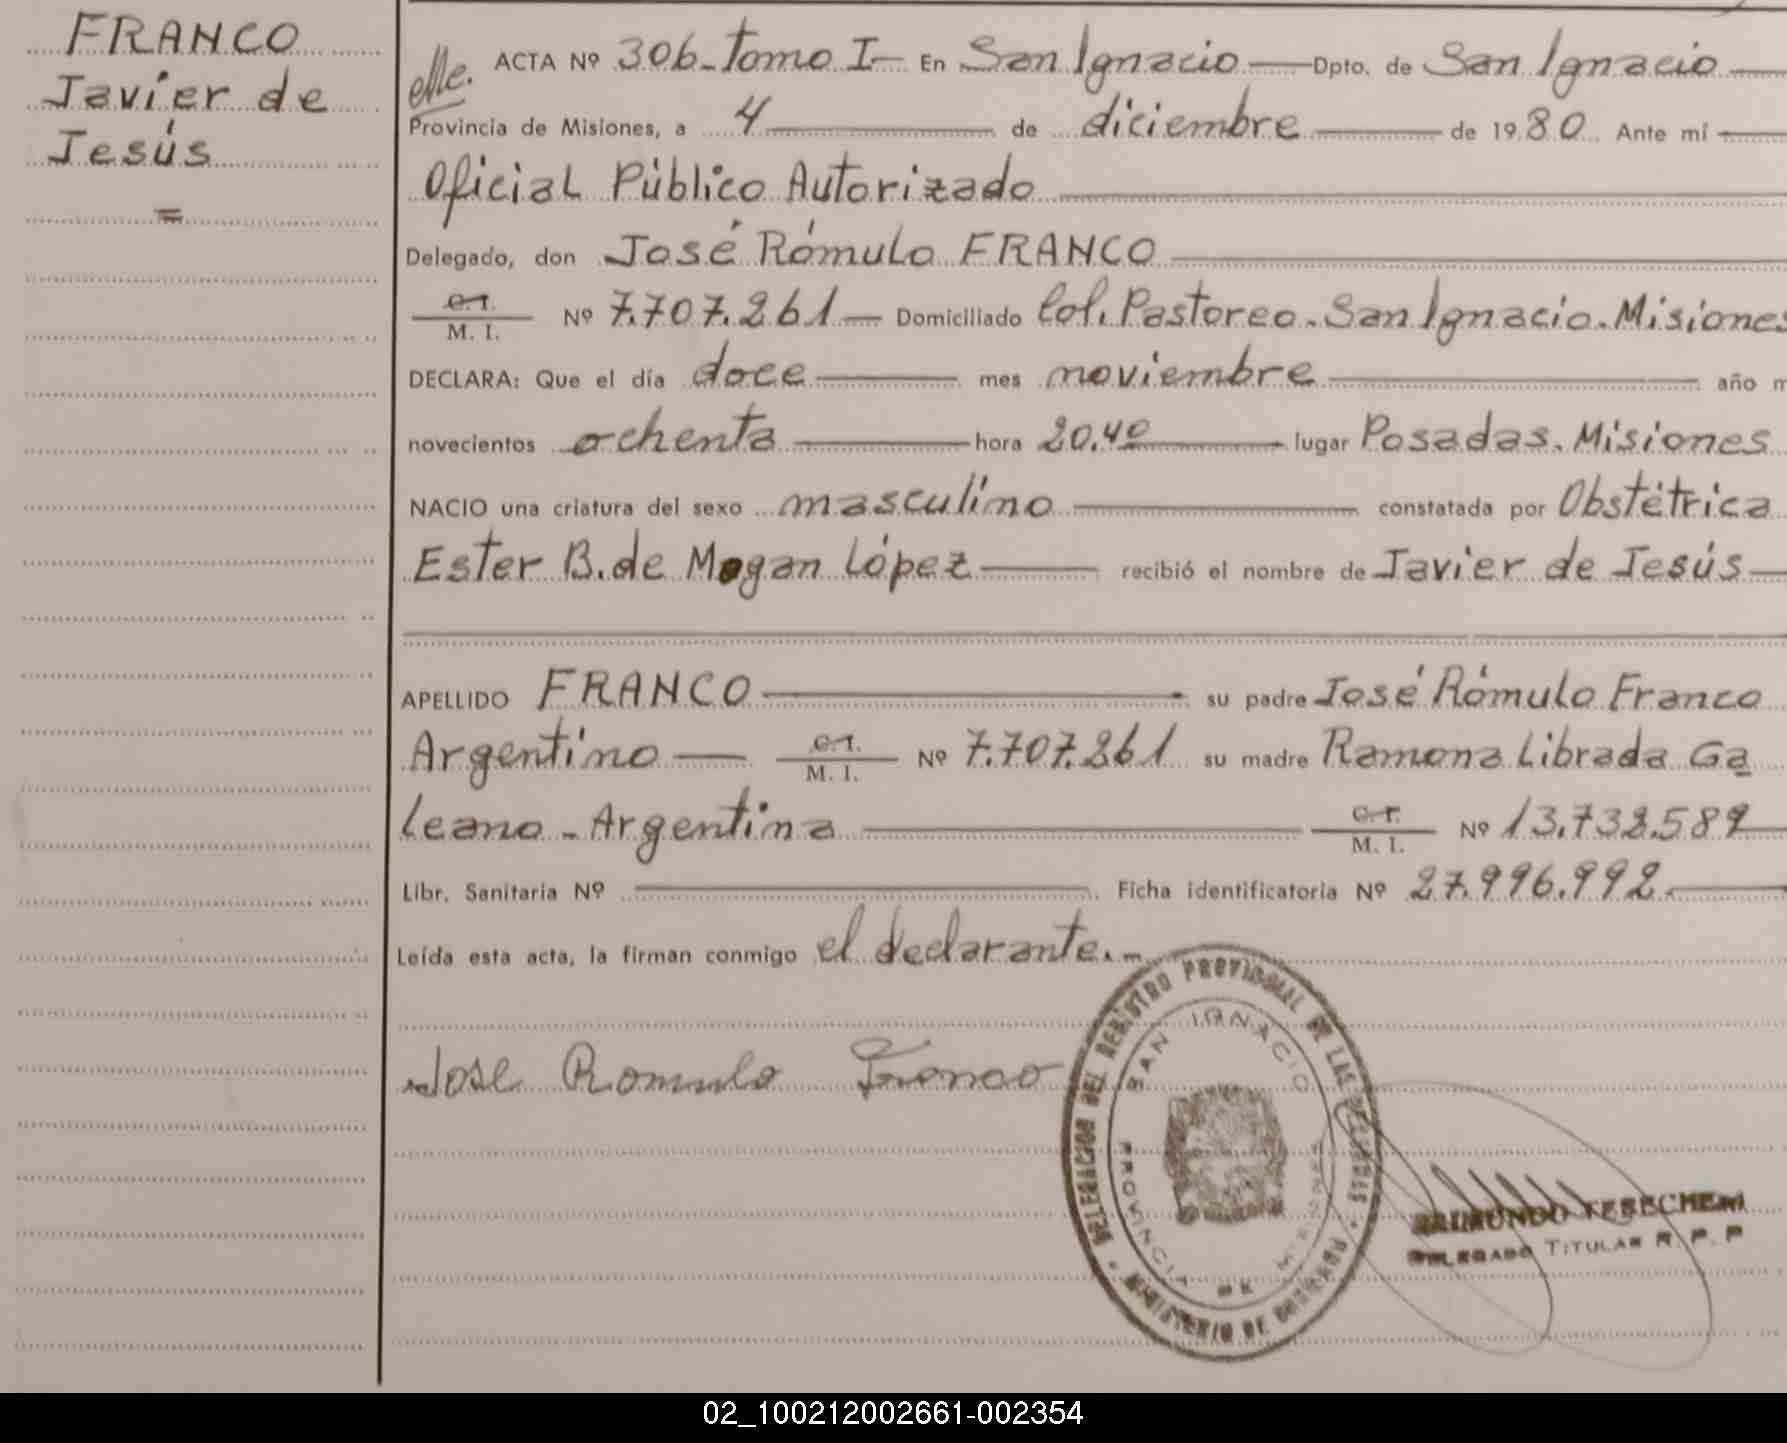 FRANCO
Javier de
Jesús
=
elle. ACTA Nº 306-tomo I— En San Ignacio — Dpto. de San Ignacio —
Provincia de Misiones, a 4 — de diciembre — de 1980 Ante mí —
Oficial Público Autorizado —
Delegado, don José Rómulo FRANCO —
C.I. / M. I. Nº 7.707.261 — Domiciliado Col. Pastoreo. San Ignacio. Misiones
DECLARA: Que el día doce — mes noviembre — año m
novecientos ochenta — hora 20.40 — lugar Posadas. Misiones
NACIO una criatura del sexo masculino — constatada por Obstétrica
Ester B. de Mogan López — recibió el nombre de Javier de Jesús —
APELLIDO FRANCO — su padre José Rómulo Franco
Argentino — C.I. / M. I. Nº 7.707.261 su madre Ramona Librada Ga
leano - Argentina — C.I. / M. I. Nº 13.732.589 —
Libr. Sanitaria Nº — Ficha identificatoria Nº 27.996.992. —
Leída esta acta, la firman conmigo el declarante. —
Jose Romulo Franco
DELEGACION DEL REGISTRO PROVINCIAL DE LAS PERSONAS
SAN IGNACIO
PROVINCIA DE MISIONES
MINISTERIO DE GOBIERNO
RAIMUNDO TERECHEM
DELEGADO TITULAR R. P. P
02_100212002661-002354